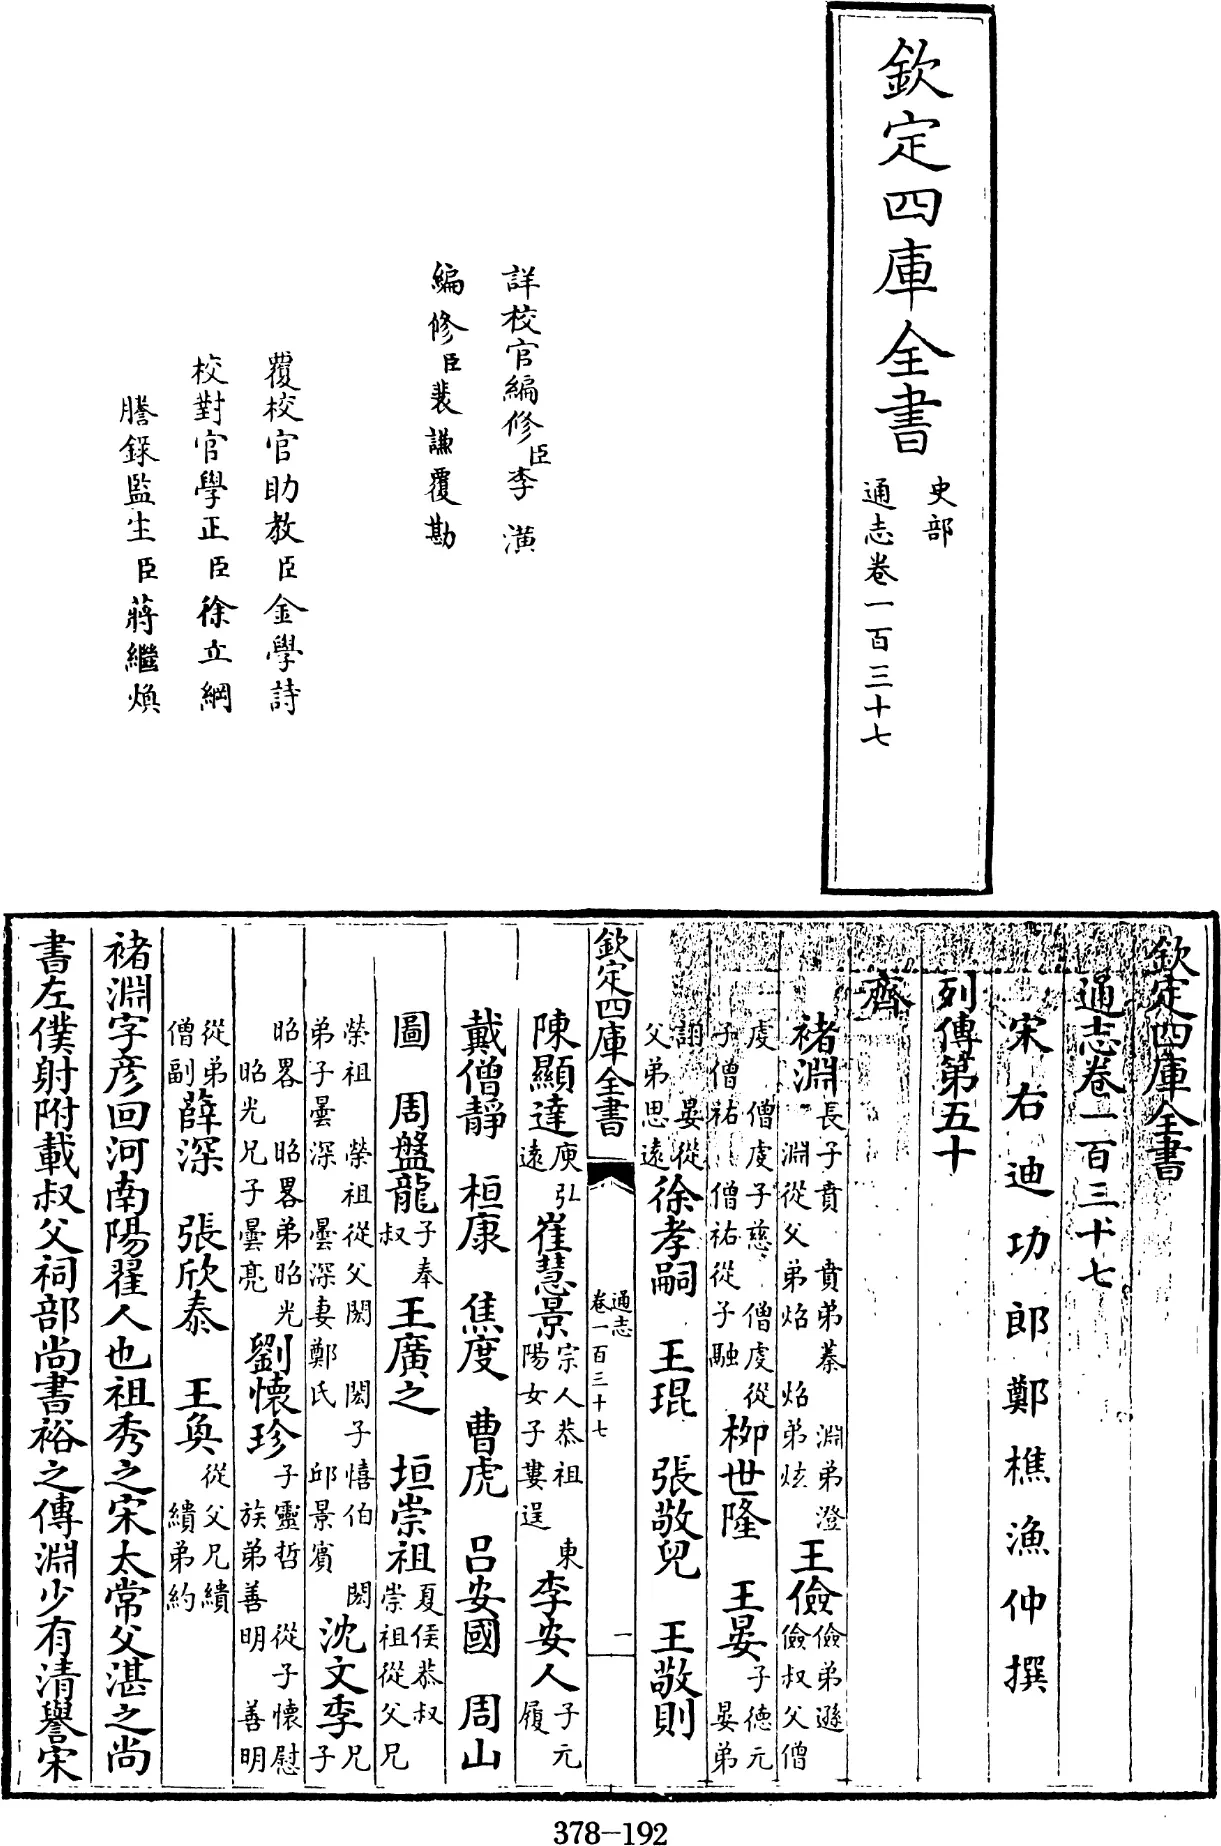 欽定四庫全書
史部
通志卷一百三十七
詳校官編修臣李潢
編修臣裴謙覆勘
覆校官助教臣金學詩
校對官學正臣徐立綱
謄錄監生臣蔣繼煥
欽定四庫全書
通志卷一百三十七
宋右迪功郎鄭樵漁仲撰
列傳第五十
齊
褚淵長子賁 賁弟蓁 淵弟澄 淵從父弟炤 炤弟炫 王儉儉弟遜 儉叔父僧
虔 僧虔子慈 僧虔從子僧祐 僧祐從子融 柳世隆 王晏子德元 晏弟
詡 晏從父弟思遠 徐孝嗣 王琨 張敬兒 王敬則
欽定四庫全書
通志
卷一百三十七
一
陳顯達庾弘遠 崔慧景宗人恭祖 東陽女子婁逞 李安人子元履
戴僧靜 桓康 焦度 曹虎 呂安國 周山
圖 周盤龍子奉叔 王廣之 垣崇祖夏侯恭叔 崇祖從父兄
榮祖 榮祖從父閎 閎子憘伯 閎弟子曇深 曇深妻鄭氏 邱景賓 沈文季兄子
昭畧 昭畧弟昭光 昭光兄子曇亮 劉懷珍子靈哲 從子懷慰 族弟善明 善明
從弟僧副 薛深 張欣泰 王奐從父兄繢 繢弟約
褚淵字彦回河南陽翟人也祖秀之宋太常父湛之尚
書左僕射附載叔父祠部尚書裕之傳淵少有清譽宋
378-192